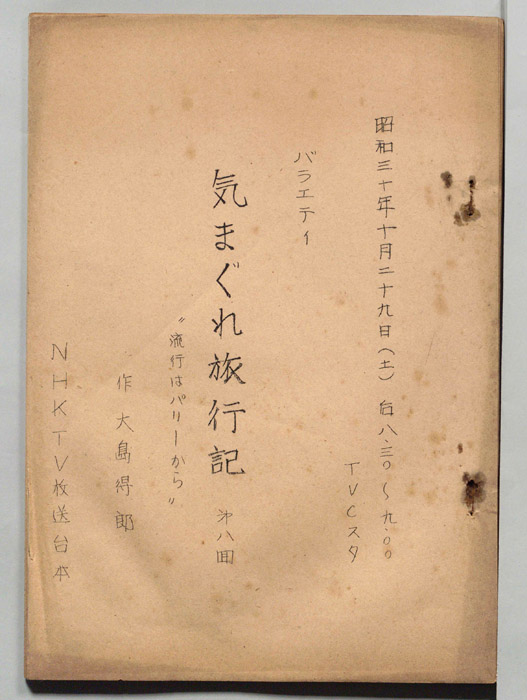 昭和三十年十月二十九日(土) 后八.三〇〜九.〇〇
TVCスタ
バラエティ
気まぐれ旅行記 第八回
〝流行はパリーから〟
作 大島得郎
NHKTV放送台本